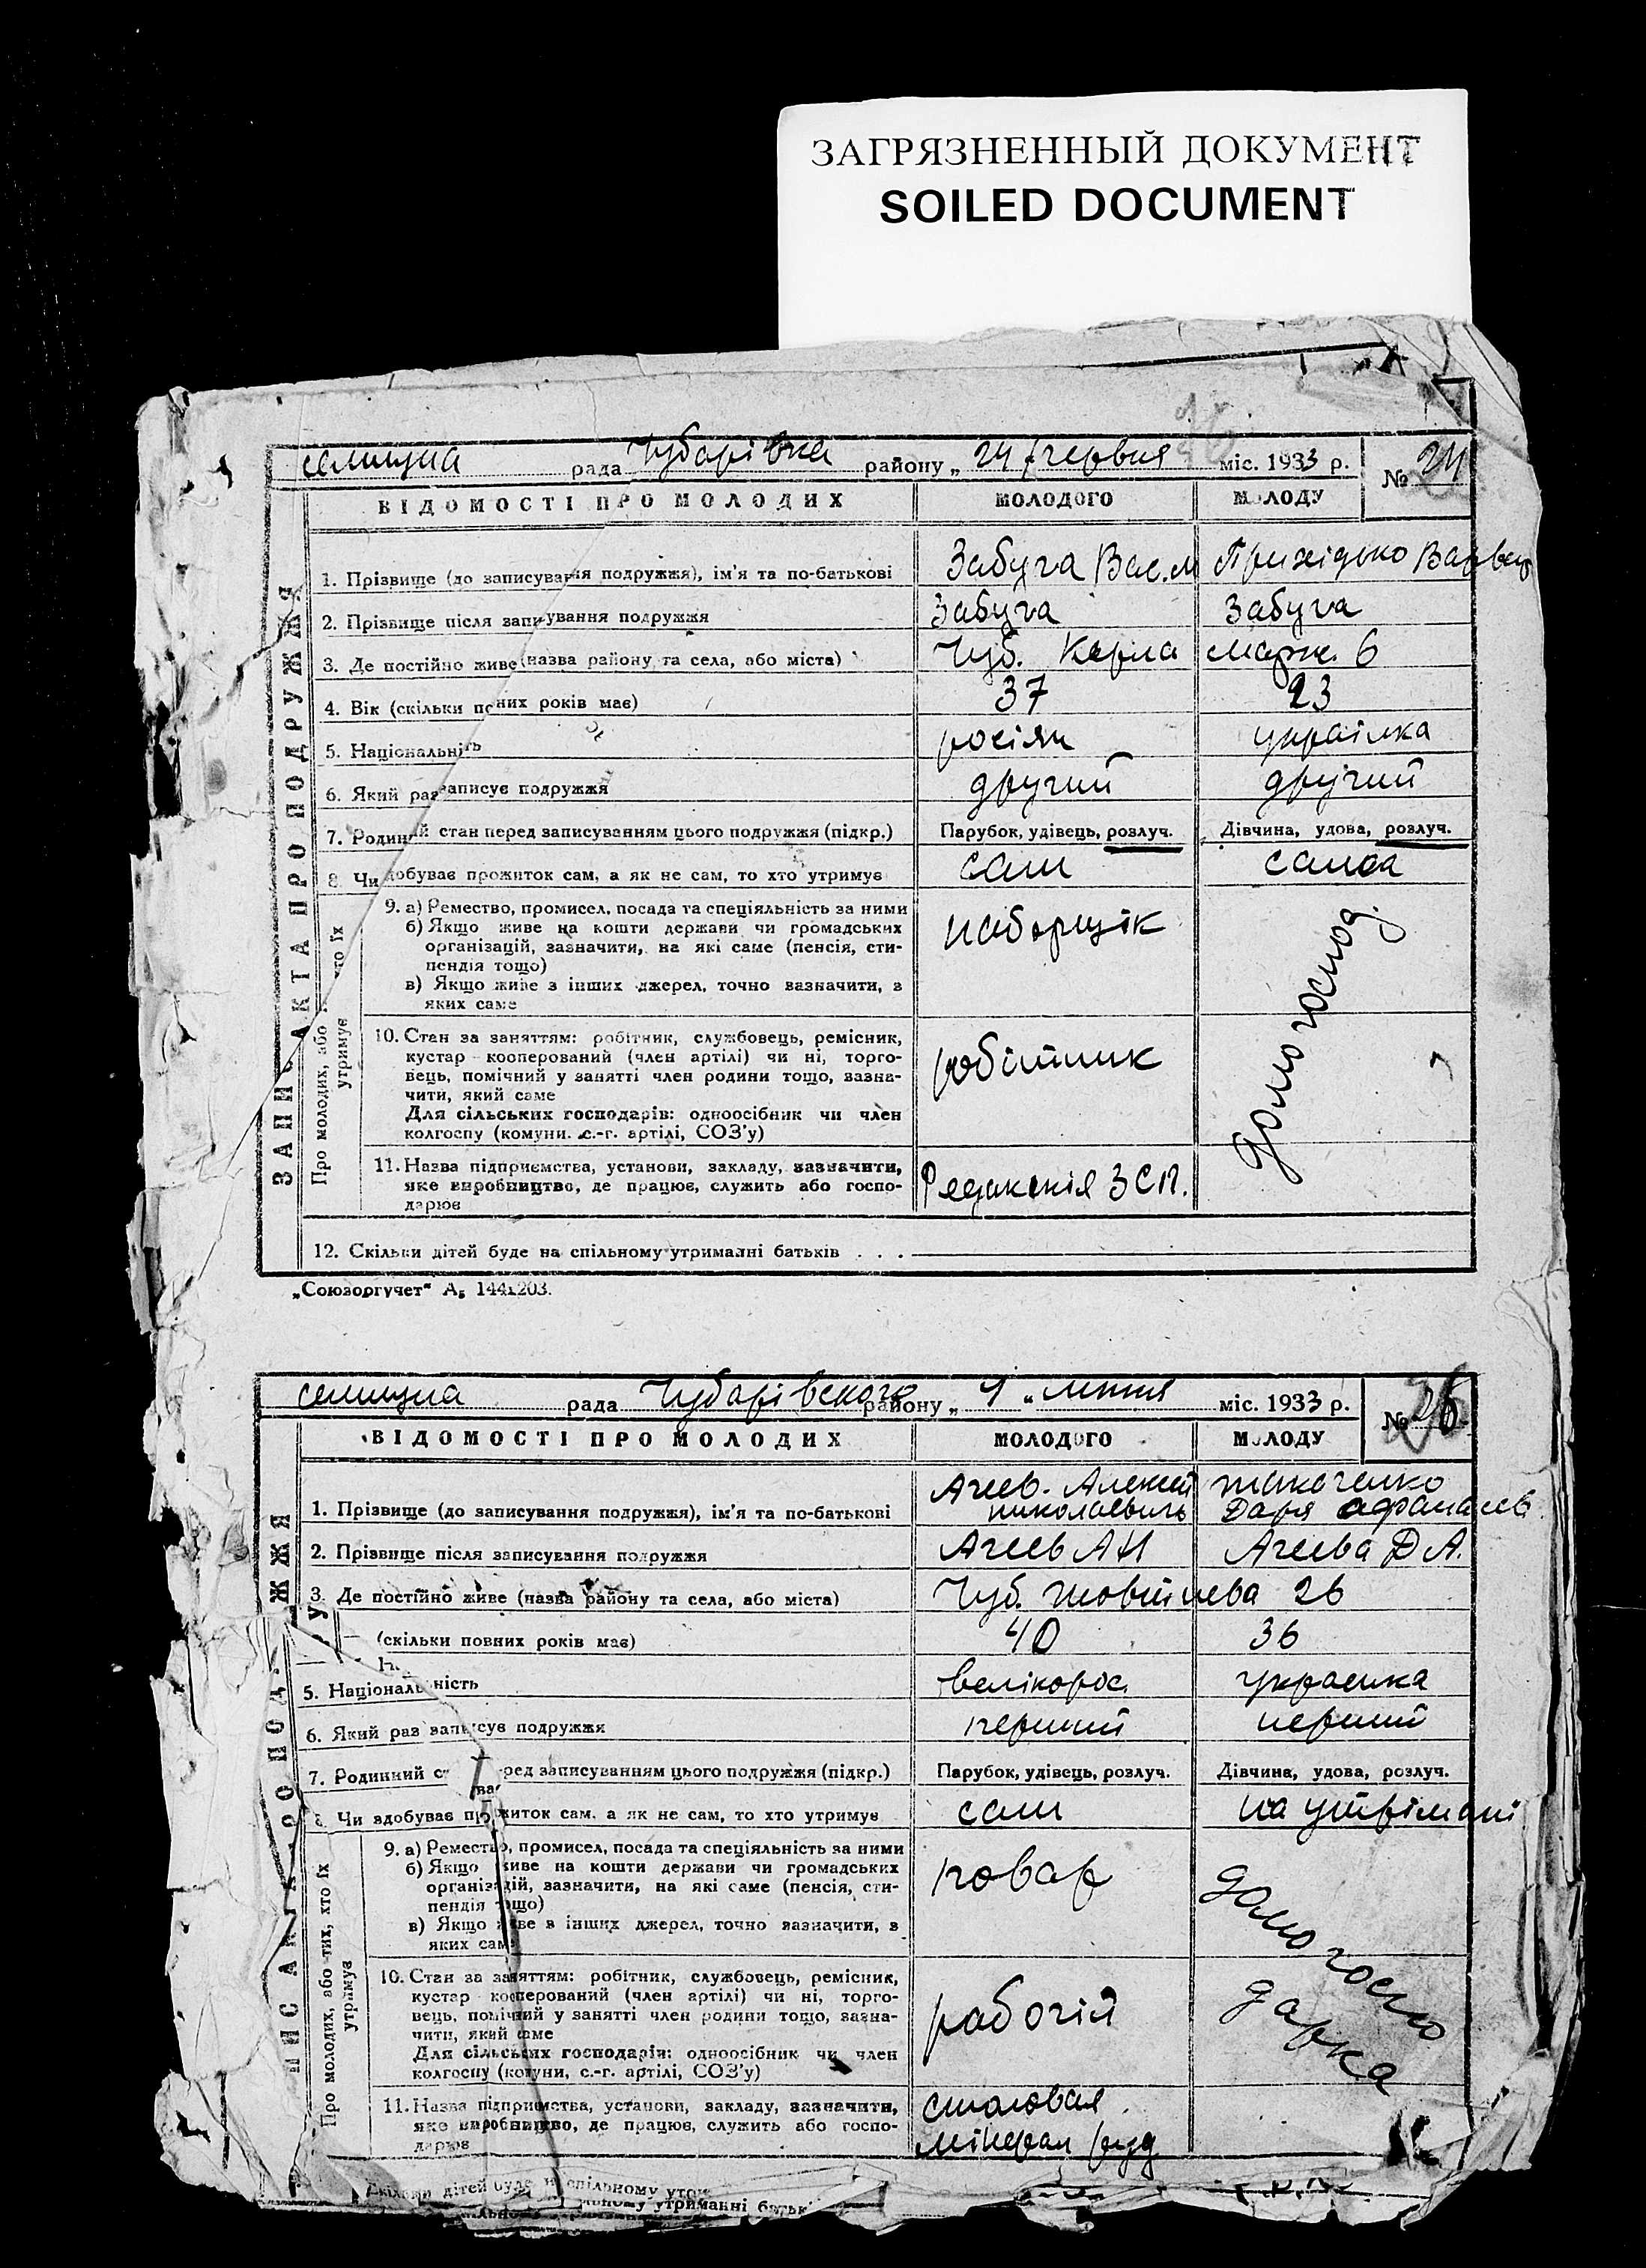 ЗАГРЯЗНЕННЫЙ ДОКУМЕНТ
SOILED DOCUMENT
селищна рада Чубарівка району „ 24 червня міс. 1933 р. № 24
ВІДОМОСТІ ПРО МОЛОДИХ МОЛОДОГО МОЛОДУ
ЗАПИС АКТА ПРО ПОДРУЖЖЯ
1. Прізвище (до записування подружжя), ім'я та по-батькові Забуга Вас. М
2. Прізвище після записування подружжя Забуга Забуга
3. Де постійно живе (назва району та села, або міста) Чуб. Карла Маркс. 6
4. Вік (скільки повних років має) 37 23
5. Національність росіян українка
6. Який раз записує подружжя другий другий
7. Родинний стан перед записуванням цього подружжя (підкр.) Парубок, удівець, розлуч. Дівчина, удова, розлуч.
8. Чи здобуває прожиток сам, а як не сам, то хто утримує сам сама
Про молодих, або тих, хто їх утримує
9. а) Ремество, промисел, посада та спеціяльність за ними наборщік домогоспод.
б) Якщо живе на кошти держави чи громадських
організацій, зазначити, на які саме (пенсія, сти-
пендія тощо)
в) Якщо живе з інших джерел, точно зазначити, з
яких саме
10. Стан за заняттям: робітник, службовець, ремісник, робітник
кустар кооперований (член артілі) чи ні, торго-
вець, помічний у занятті член родини тощо, зазна-
чити, який саме
Для сільських господарів: одноосібник чи член
колгоспу (комуни. с.-г. артілі, СОЗ'у)
11. Назва підприємства, установи, закладу, зазначити, Редакція ЗСП.
яке виробництво, де працює, служить або госпо-
дарює
12. Скільки дітей буде на спільному утриманні батьків . . .
„Союзоргучет“
селищна рада Чубарівского району „ 1 „ липня міс. 1933 р. № 26
ВІДОМОСТІ ПРО МОЛОДИХ МОЛОДОГО МОЛОДУ
1. Прізвище (до записування подружжя), ім'я та по-батькові Агеев. Алексей николаевичь Даря афанасев
2. Прізвище після записування подружжя Агеев А Н Агеева Д А.
3. Де постійно живе (назва району та села, або міста) Чуб. Жовтнева 26
(скільки повних років має) 40 36
5. Національність велікорос. украенка
6. Який раз записує подружжя перший перший
7. Родинний ст перед записуванням цього подружжя (підкр.) Парубок, удівець, розлуч. Дівчина, удова, розлуч.
8. Чи здобуває прожиток сам, а як не сам, то хто утримує сам на утрімані
Про молодих, або тих, хто їх утримує
9. а) Ремество, промисел, посада та спеціяльність за ними повар домогосподарка
б) Якщо живе на кошти держави чи громадських
організацій, зазначити, на які саме (пенсія, сти-
пендія тощо)
в) Якщо живе з інших джерел, точно зазначити, з
яких саме
10. Стан за заняттям: робітник, службовець, ремісник, рабочій
кустар кооперований (член артілі) чи ні, торго-
вець, помічний у занятті член родини тощо, зазна-
чити, який саме
Для сільських господарів: одноосібник чи член
колгоспу (комуни, с.-г. артілі, СОЗ'у)
11. Назва підприємства, установи, закладу, зазначити, столовая
яке виробництво, де працює, служить або госпо- мінерал руд
дарює
Скільки дітей буде на спільному утриманні батьк